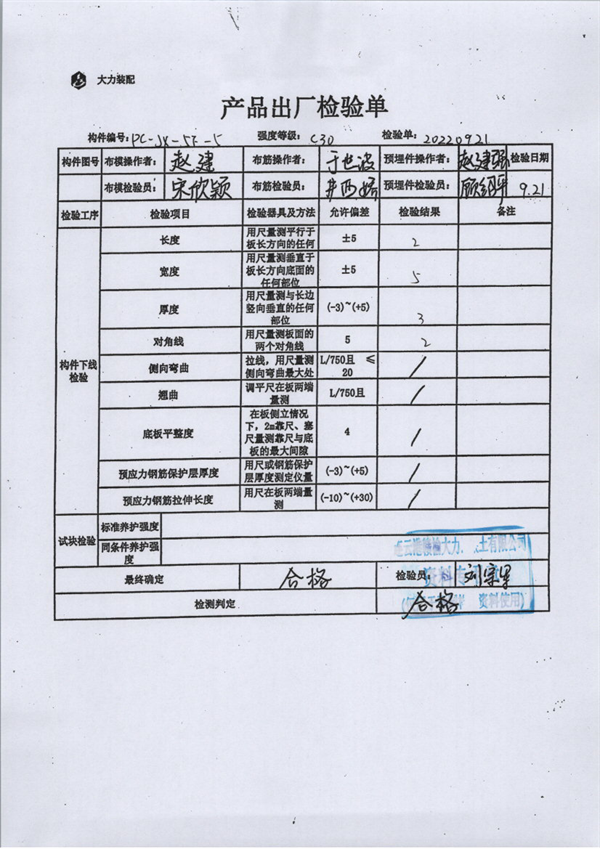 大力装配
产品出厂检验单
构件编号: PC-JX-5F-5 强度等级: C30 检验单: 20220921
构件图号 布模操作者: 赵建 布筋操作者: 于 波 预埋件操作者: 赵建强 检验日期
布模检验员: 宋欣颖 布筋检验员: 井西婷 预埋件检验员: 9.21
检验工序 检验项目 检验器具及方法 允许偏差 检验结果 备注
构件下线检验
长度 用尺量测平行于板长方向的任何 ±5 2
宽度 用尺量测垂直于板长方向底面的任何部位 ±5 5
厚度 用尺量测与长边竖向垂直的任何部位 (-3)~(+5) 3
对角线 用尺量测板面的两个对角线 5 2
侧向弯曲 拉线，用尺量测侧向弯曲最大处 L/750且 ≤20 /
翘曲 调平尺在板两端量测 L/750且 /
底板平整度 在板侧立情况下，2m靠尺、塞尺量测靠尺与底板的最大间隙 4 /
预应力钢筋保护层厚度 用尺或钢筋保护层厚度测定仪量 (-3)~(+5) /
预应力钢筋拉伸长度 用尺在板两端量测 (-10)~(+30) /
试块检验 标准养护强度
同条件养护强度
最终确定 合格 检验员:
检测判定 合格
大力
土有限公司
资料
资料使用)